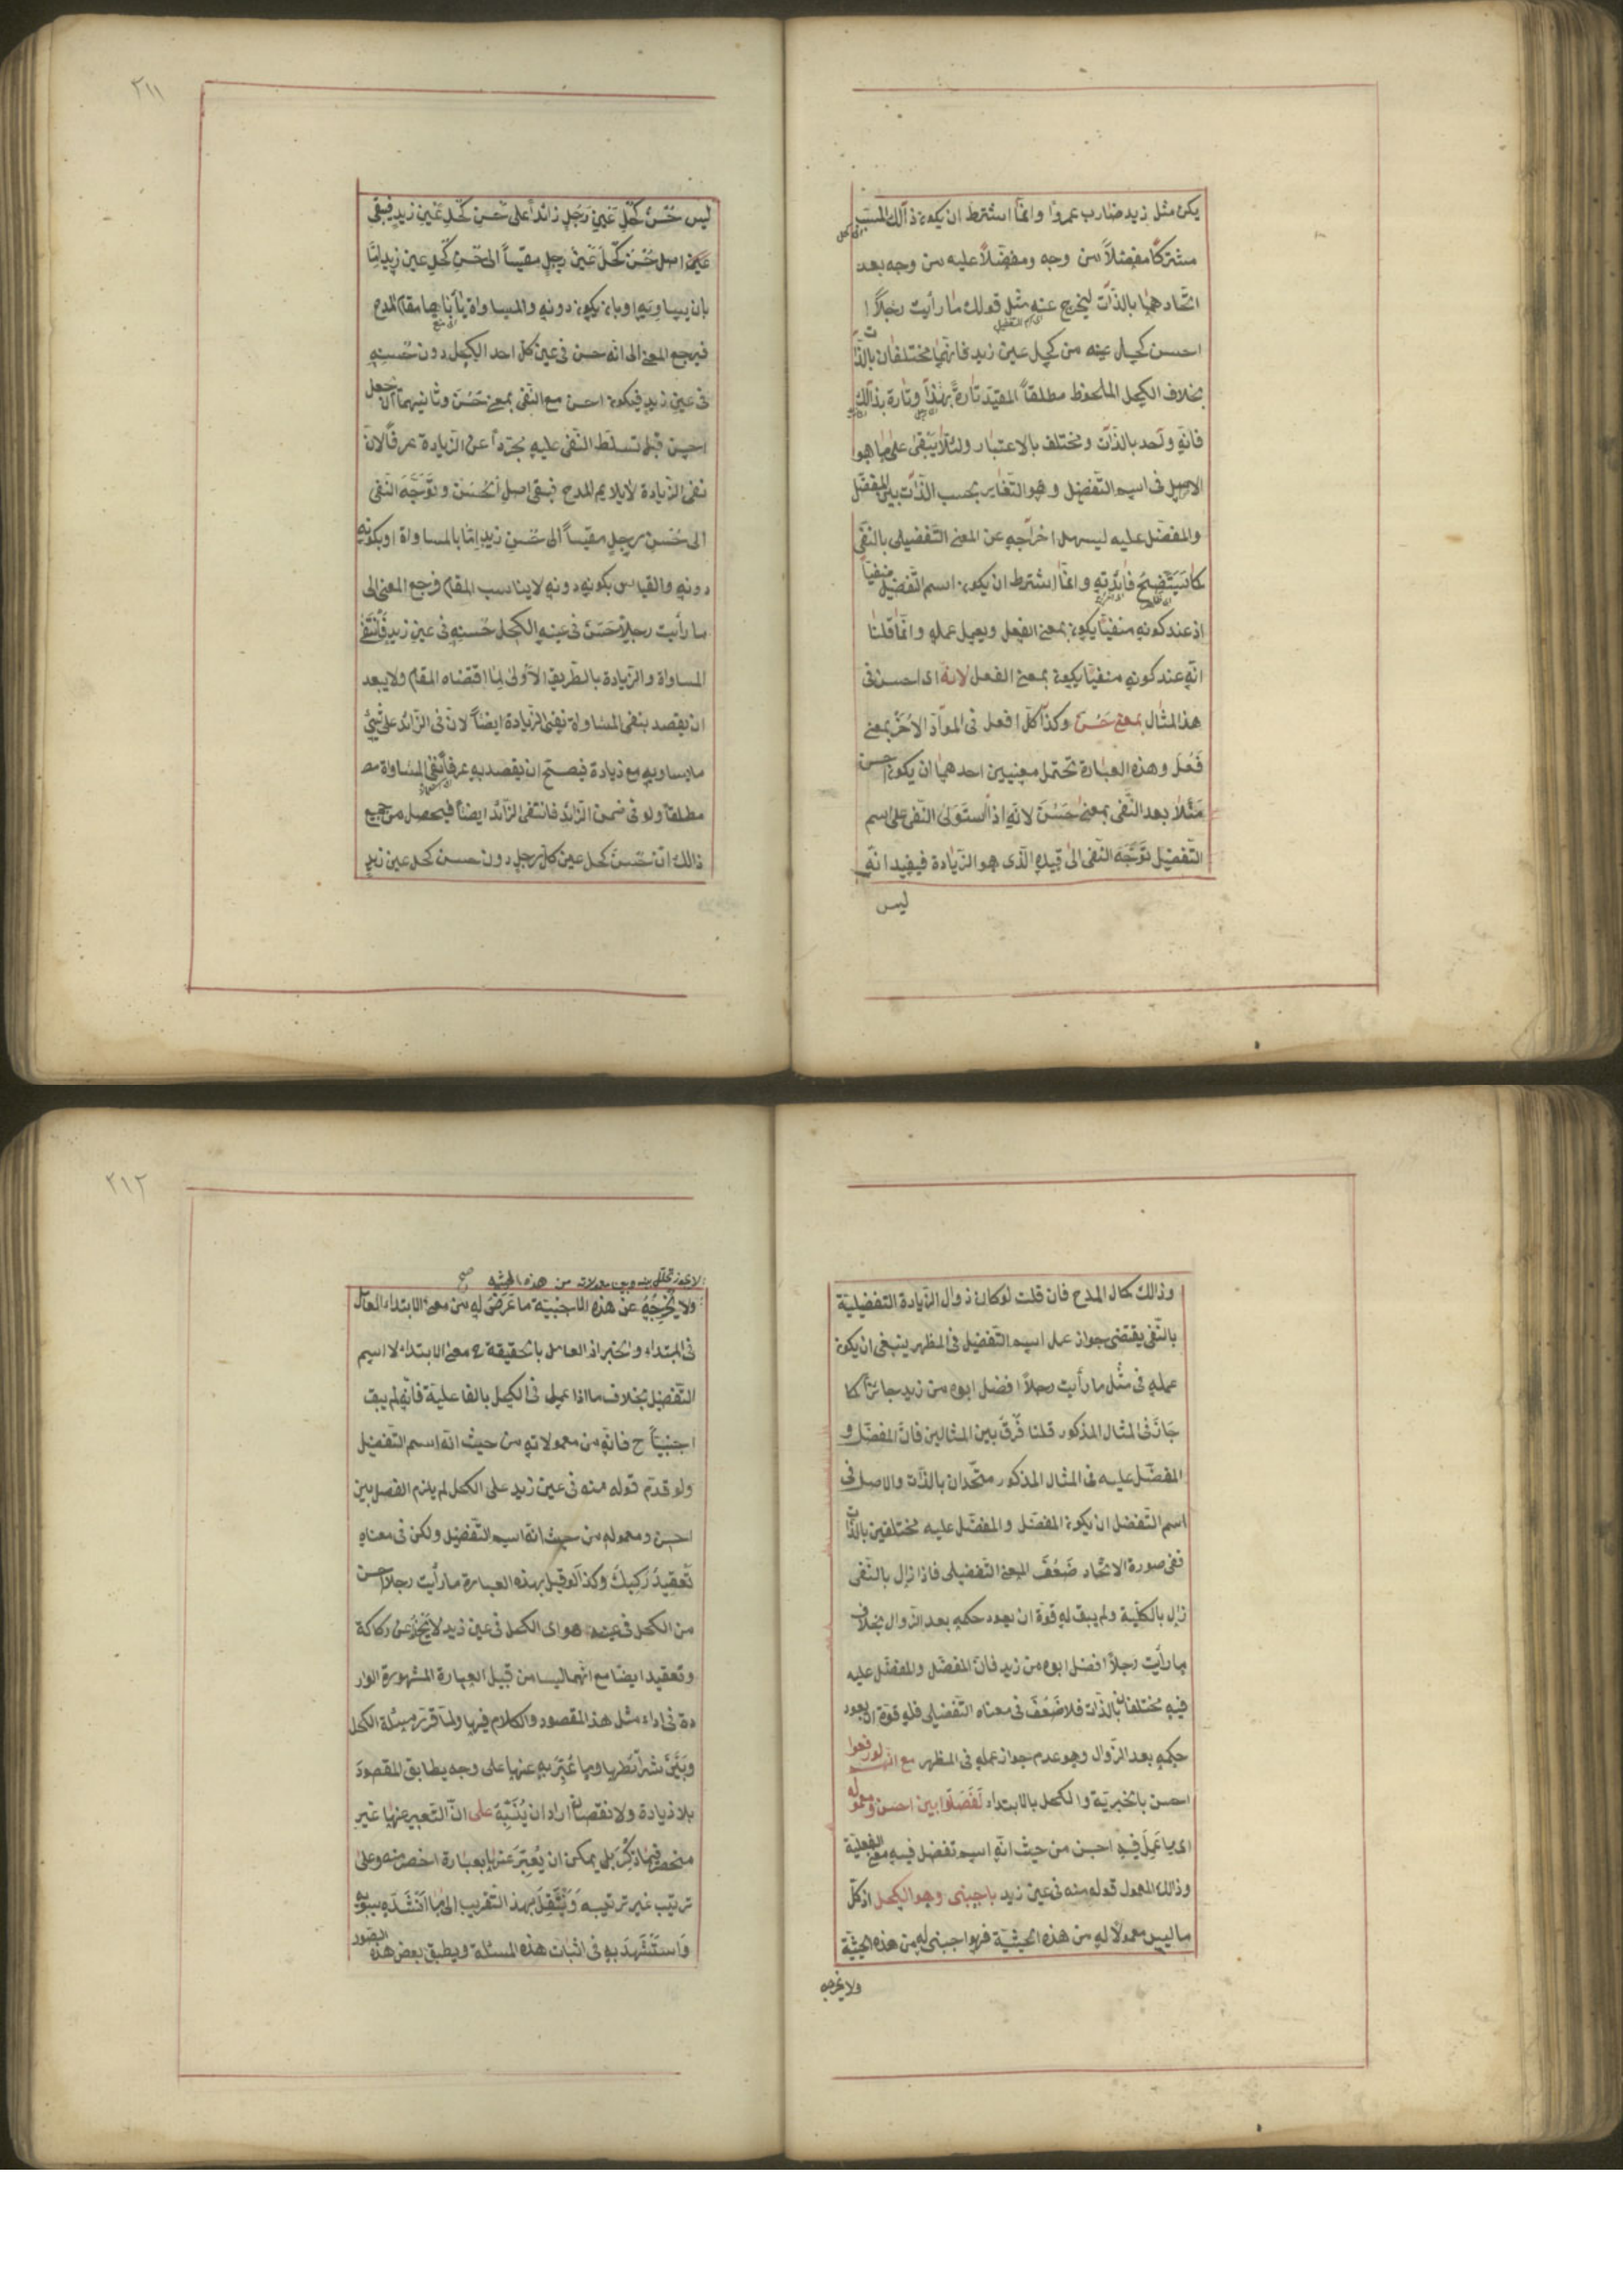 يكن مثل زيد ضارب عمروا وانما اشترط ان يكون ذالك المسبب
مشتركا مفضلا من وجه ومفضلا عليه من وجه بعد
اتحادهما بالذات ليخرج عنه مثل قولك ما رأيت رجلا
احسن كحل عينه من كحل عين زيد فانهما مختلفان بالذات
بخلاف الكحل الملحوظ مطلقا المقيد تارة بهذا وتارة بذالك
فانه واحد بالذات ومختلف بالاعتبار ولئلا يبقى على ما هو
الاصل فى اسم التفضيل وهو التغاير بحسب الذات بين المفضل
والمفضل عليه ليسهل اخراجه عن المعنى التفضيلى بالنفى
كما سيتضح فائدته وانما اشترط ان يكون اسم التفضيل منفيا
اذ عند كونه منفيا يكون بمعنى الفعل ويعمل عمله وانما قلنا
انه عند كونه منفيا يكون بمعنى الفعل لانه اى احسن فى
هذ المثال بمعنى حسن وكذا كل افعل فى المواد الاخر بمعنى
فعل وهذه العبارة تحتمل معنيين احدهما ان يكون احسن
مثلا بعد النفى بمعنى حسن لانه اذا استولى النفى على اسم
التفضيل توجه النفى الى قيده الذى هو الزيادة فيفيد انه
ليس
٢١١
ليس حسن كحل عين رجل زائدا على حسن كحل عين زيد فيبقى
اصل حسن كحل عين رجل مقيسا الى حسن كحل عين زيد اما
بان يساويه او بان يكون دونه والمساواة يأباها مقام المدح
فيرجع المعنى الى انه حسن فى عين كل احد الكحل دون حسنه
فى عين زيد فيكون احسن مع النفى بمعنى حسن وثانيهما ان جعل
احسن قبل تسلط النفى عليه مجردا عن الزيادة عرفا لان
نفى الزيادة لا يلايم المدح فبقى اصل الحسن وتوجه النفى
الى حسن رجل مقيسا الى حسن زيد اما بالمساواة او بكونه
دونه والقياس بكونه دونه لا يناسب المقام فرجع المعنى الى
ما رأيت رجلا حسن فى عينه الكحل حسنه فى عين زيد فانتفى
المساواة والزيادة بالطريق الاولى لما اقتضاه المقام ولا يبعد
ان يقصد بنفى المساواة نفى الزيادة ايضا لان فى الزائد على شئ
ما يساويه مع زيادة فيصح ان يقصد به عرفا نفى المساواة
مطلقا ولو فى ضمن الزائد فانتفى الزائد ايضا فيحصل من جميع
ذالك ان حسن كحل عين كل رجل دون حسن كحل عين زيد
وذالك كمال المدح فان قلت لو كان زوال الزيادة التفضيلية
بالنفى يقتضى جواز عمل اسم التفضيل فى المظهر ينبغى ان يكون
عمله فى مثل ما رأيت رجلا افضل ابوه من زيد جائزا كما
جاز فى المثال المذكور قلنا فرق بين المثالين فان المفضل و
المفضل عليه فى المثال المذكور متحدان بالذات والاصل فى
اسم التفضل ان يكون المفضل والمفضل عليه مختلفين بالذات
ففى صورة الاتحاد ضعف المعنى التفضيلى فاذا زال بالنفى
زال بالكلية ولم يبق له قوة ان يعود حكمه بعد الزوال بخلاف
ما رأيت رجلا افضل ابوه من زيد فان المفضل والمفضل عليه
فيه مختلفان بالذات فلا ضعف فى معناه التفضيلى فله قوة ان يعود
حكمه بعد الزوال وهو عدم جواز عمله فى المظهر مع انهم لو رفعوا
احسن بالخبرية والكحل بالابتداء لفصلوا بين احسن ومعموله
اى ما عمل فيه احسن من حيث انه اسم تفضل فيه معنى الفعلية
وذالك المعمول قوله منه فى عين زيد باجنبى وهو الكحل اذ كل
ما ليس معمولا له من هذه الحيثية فهو اجنبى له من هذه الحيثية
ولا يخرجه
٢١٢
لا يجوز تخلل بينه وبين معمولاته من هذه الحيثية صح
ولا يخرجه عن هذه الاجنبية ما عرض له من معنى الابتداء العامل
فى المبتداء والخبر اذ العامل بالحقيقة معنى الابتداء لا اسم
التفضيل بخلاف ما اذا عمل فى الكحل بالفاعلية فانه لم يبق
اجنبيا ح فانه من معمولاته من حيث انه اسم التفضيل
ولو قدم قوله منه فى عين زيد على الكحل لم يلزم الفصل بين
احسن ومعموله من حيث انه اسم التفضيل ولكن فى معناه
تعقيد ركيك وكذا لو قيل بهذه العبارة ما رأيت رجلا احسن
من الكحل فى عينه هو اى الكحل فى عين زيد لا يخلو عن ركاكة
وتعقيد ايضا مع انهما ليسا من قبيل العبارة المشهورة الوار
دة فى اداء مثل هذ المقصود والكلام فيها ولما قرر مسئلة الكحل
وبين شرائطها وما عبر به عنها على وجه يطابق المقصود
بلا زيادة ولا نقصان اراد ان ينبه على ان التعبير عنها غير
منحصر فيما ذكر بل يمكن ان يعبر عنها بعبارة اخصر منه وعلى
ترتيب غير ترتيبه وينتقل بهذ التقريب الى ما انشده سيبويه
واستشهد به فى اثبات هذه المسئلة ويطبق بعض هذه الصور